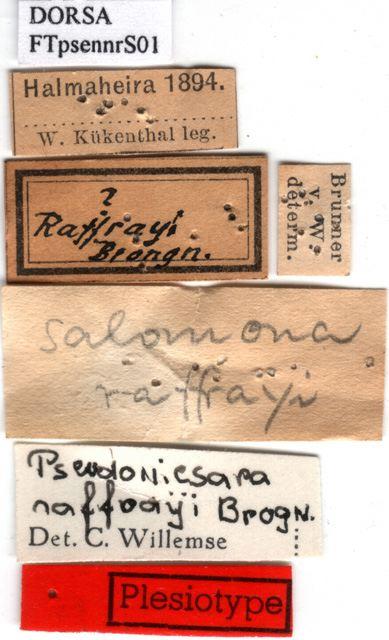 DORSA
FTpsennrS01
Halmaheira 1894.
W. Kükenthal leg.
?
Raffrayi
Brongn.
Brunner
v. W.
determ.
Salomona
raffrayi
Pseudonicsara
raffrayi Brogn.
Det. C. Willemse
Plesiotype